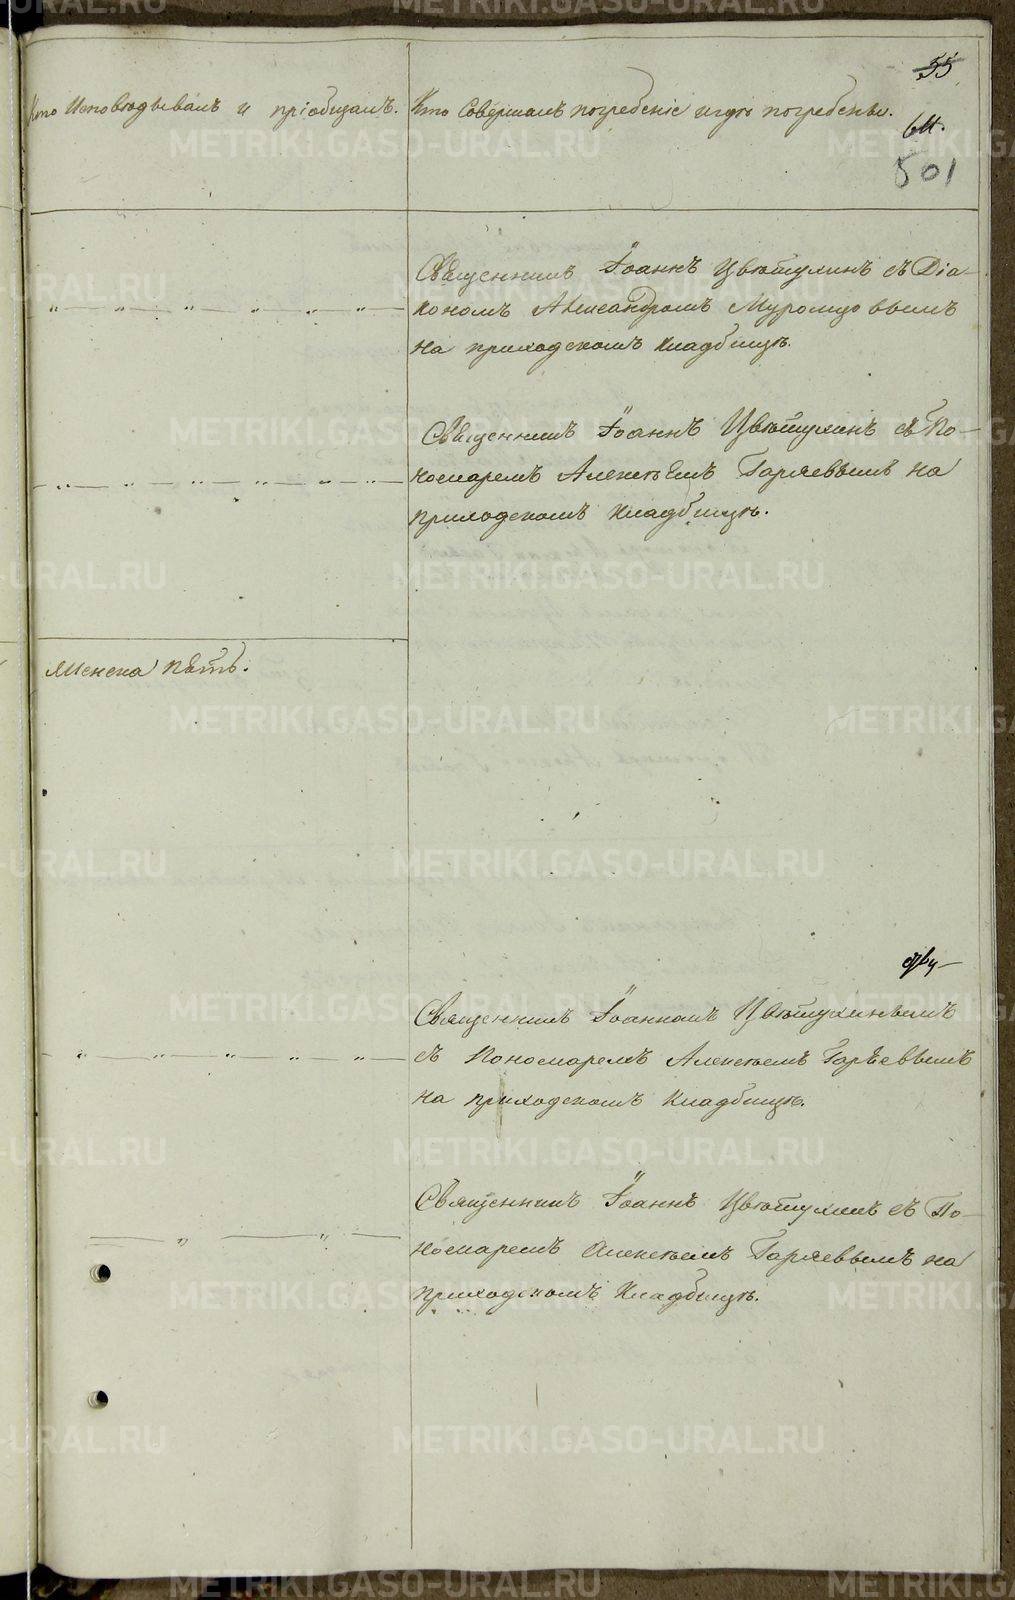 55
61.
501
Кто Исповѣдывалъ и пріобщалъ. Кто Совершалъ погребеніе и гдѣ погребены.
Священникъ Іоаннъ Цвѣтухинъ съ Діа-
кономъ Александромъ Муромцовымъ
на приходскомъ кладбищѣ.
Священникъ Іоаннъ Цвѣтухинъ съ По-
номаремъ Алексѣемъ Горяевымъ на
приходскомъ кладбищѣ.
Женска пѣтъ.
Священникъ Іоанномъ Цвѣтухинымъ
съ Пономаремъ Алексѣемъ Горяевымъ
на приходскомъ кладбищѣ.
Священникъ Іоаннъ Цвѣтухинъ съ По-
номаремъ Алексѣемъ Горяевымъ на
приходскомъ кладбищѣ.
METRIKI.GASO-URAL.RU